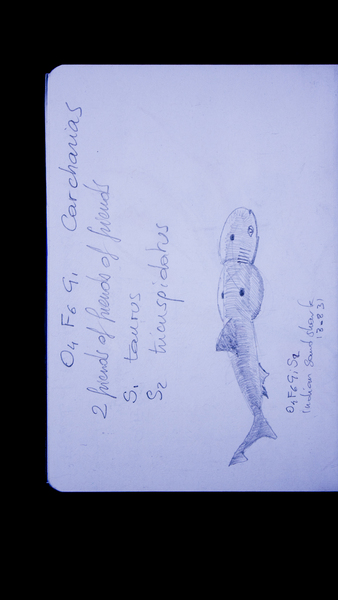 O4 F6 G1 Carcharias
2 friends of friends of friends
S1 taurus
S2 tricuspidatus
O4 F6 G1 S2
Indian sand shark
(3-83)